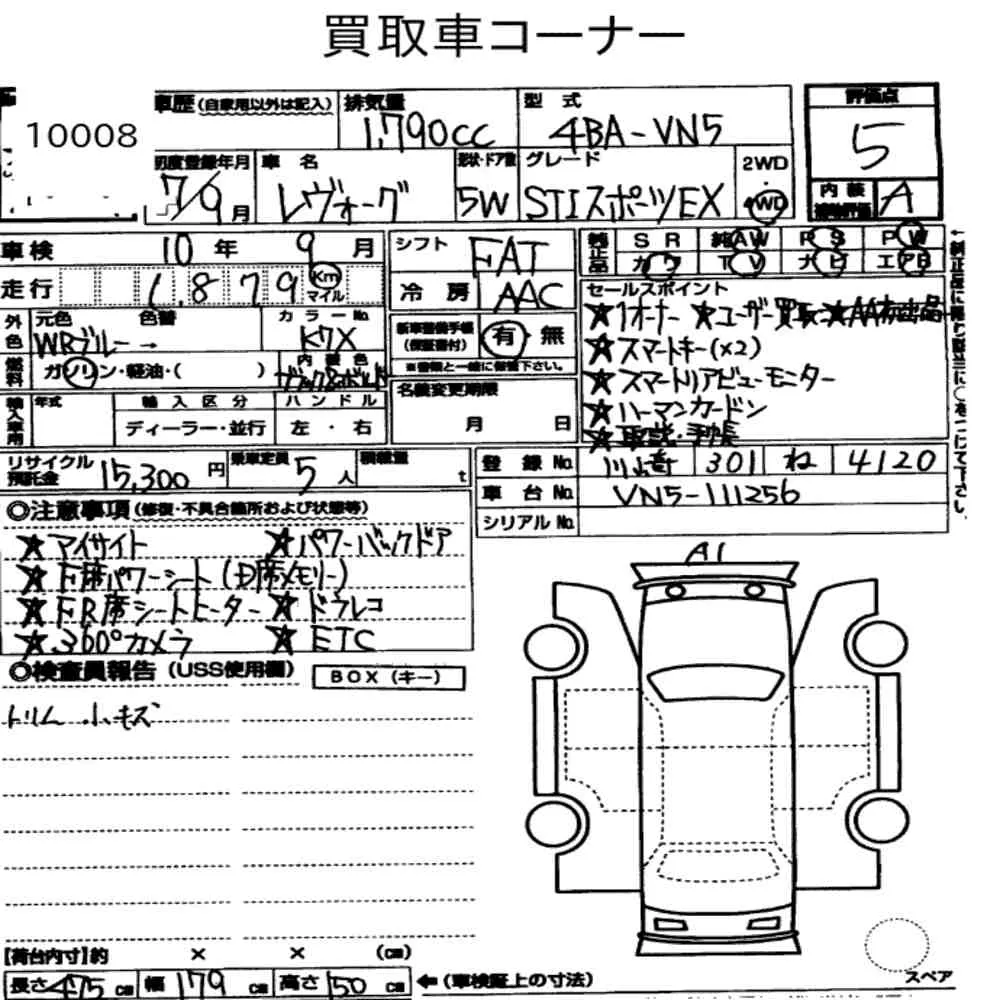 買取車コーナー
10008
車歴(自家用以外は記入)
排気量
1,790cc
型式
4BA-VN5
評価点
5
初度登録年月
7/9月
車名
レヴォーグ
形状・ドア数
5W
グレード
STIスポーツEX
2WD
4WD
内装
補助評価
A
車検 10年 9月
シフト
FAT
純正品
SR 純AW PS PW
カワ TV ナビ エアB
走行 1,879 Km マイル
冷房
AAC
セールスポイント
★1オーナー ★ユーザー買取 ★AA初出品
★スマートキー(×2)
★スマートリアビューモニター
★ハーマンカードン
★取説・手帳
外色
元色 色替
WRブルー→
カラーNo.
K7X
新車整備手帳(保証書付)
有・無
※書類と一緒に保管下さい。
燃料
ガソリン・軽油・( )
内装色
名義変更期限
月 日
輸入車用
年式
輸入区分
ディーラー・並行
ハンドル
左・右
リサイクル預託金 15,300円
乗車定員 5人
積載量 t
登録No. 川崎 301 ね 4120
車台No. VN5-111256
シリアルNo.
◎注意事項(修復・不具合箇所および状態等)
★アイサイト ★パワーバックドア
★F席パワーシート(D席メモリー)
★FR席シートヒーター ★ドラレコ
★360°カメラ ★ETC
◎検査員報告(USS使用欄)
BOX(キー)
トリム 小キズ
A1
[荷台内寸]約 × × (cm)
長さ 475cm 幅 179cm 高さ 150cm ←(車検証上の寸法)
スペア